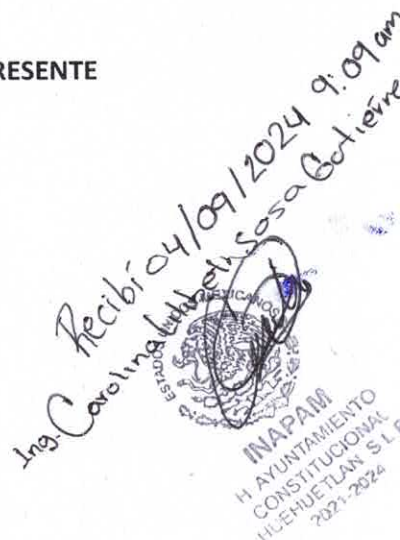 RESENTE
Recibi 04/09/2024 9:09 am
Ing. Carolina Sosa Gutierre
ESTADOS MEXICANOS
INAPAM
H AYUNTAMIENTO
CONSTITUCIONAL
HUEHUETLAN S L P
2021-2024